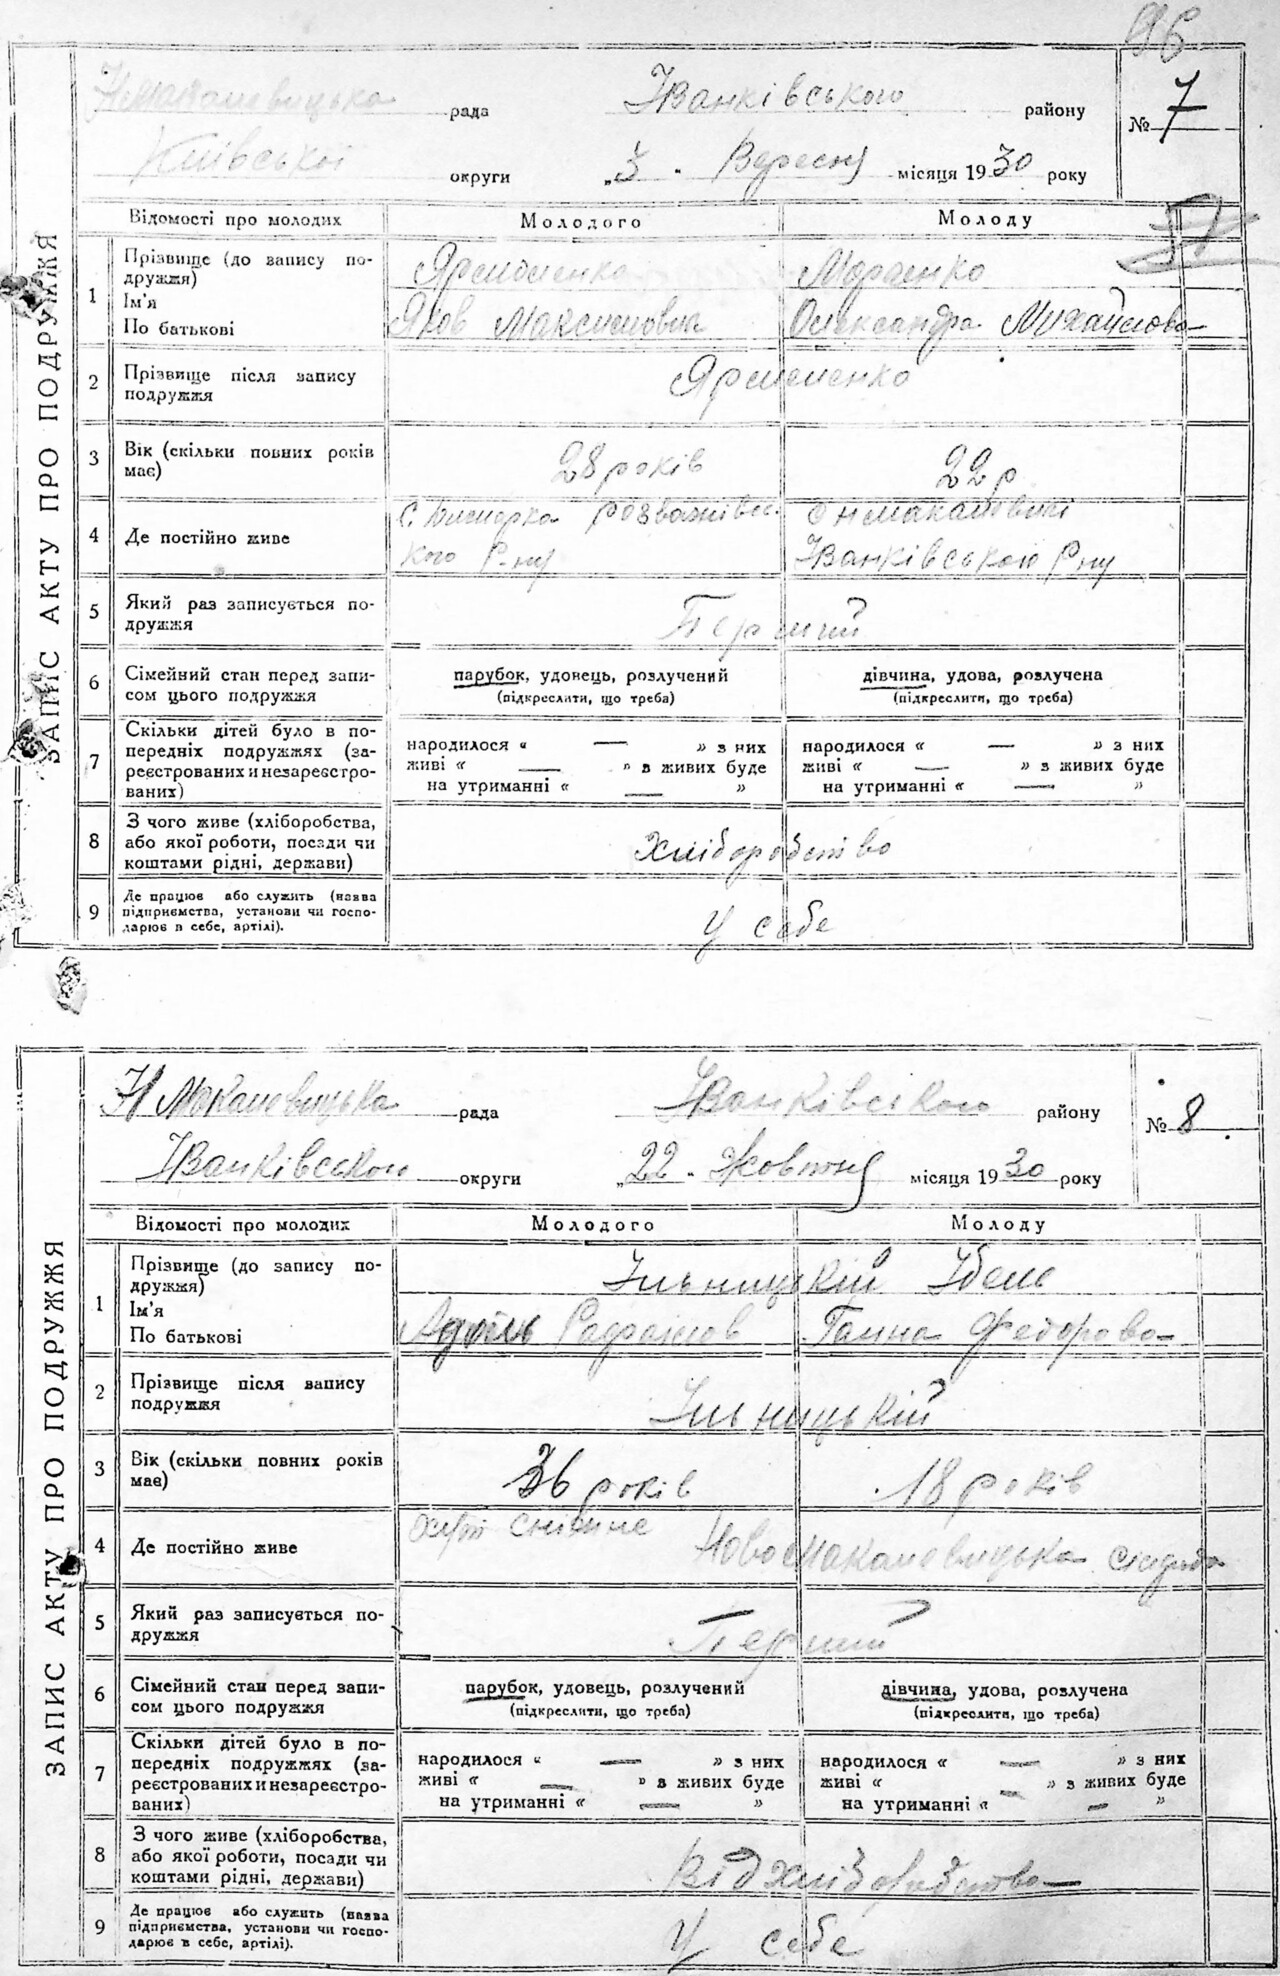 96
ЗАПИС АКТУ ПРО ПОДРУЖЖЯ
Нмакалевицька рада Іванківського району № 7
Київської округи „3" Вересня місяця 1930 року
Відомості про молодих Молодого Молоду
1 Прізвище (до запису по- Яременко
дружжя)
Ім'я Яков Максимович Олександра Михайлова
По батькові
2 Прізвище після запису Яременко
подружжя
3 Вік (скільки повних років 28 років 22 р
має)
4 Де постійно живе с. Розважівсь- с Нмакалевичі
кого Р-ну Іванківського Р ну
5 Який раз записується по- Перший
дружжя
6 Сімейний стан перед запи- парубок, удовець, розлучений дівчина, удова, розлучена
сом цього подружжя (підкреслити, що треба) (підкреслити, що треба)
7 Скільки дітей було в по-
передніх подружжях (за- народилося « — » з них народилося « — » з них
реєстрованих и незареєстро- живі « — » в живих буде живі « — » з живих буде
ваних) на утриманні « — » на утриманні « — »
8 З чого живе (хліборобства,
або якої роботи, посади чи хліборобство
коштами рідні, держави)
9 Де працює або служить (назва
підприємства, установи чи госпо- у себе
дарює в себе, артілі).
ЗАПИС АКТУ ПРО ПОДРУЖЖЯ
Н Макалевицька рада Іванківського району № 8
Іванківського округи „22" Жовтня місяця 1930 року
Відомості про молодих Молодого Молоду
1 Прізвище (до запису по- Ільницькій
дружжя)
Ім'я
По батькові Рафаілов Ганна Федорова
2 Прізвище після запису Ільницькій
подружжя
3 Вік (скільки повних років 36 років 18 років
має)
4 Де постійно живе Новомакалевицька сільрада
5 Який раз записується по- Перший
дружжя
6 Сімейний стан перед запи- парубок, удовець, розлучений дівчина, удова, розлучена
сом цього подружжя (підкреслити, що треба) (підкреслити, що треба)
7 Скільки дітей було в по-
передніх подружжях (за- народилося « — » з них народилося « — » з них
реєстрованих и незареєстро- живі « — » в живих буде живі « — » з живих буде
ваних) на утриманні « — » на утриманні « — »
8 З чого живе (хліборобства,
або якої роботи, посади чи Від хліборобства
коштами рідні, держави)
9 Де працює або служить (назва
підприємства, установи чи госпо- у себе
дарює в себе, артілі).